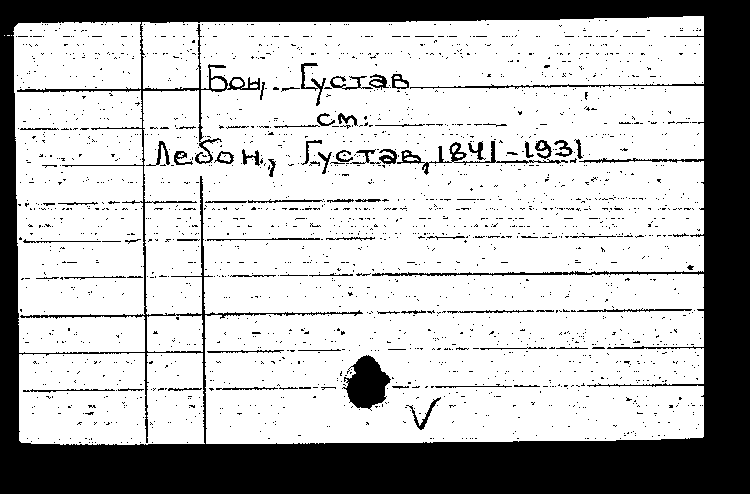 Бон, Густав
см:
Лебон, Густав, 1841-1931
V